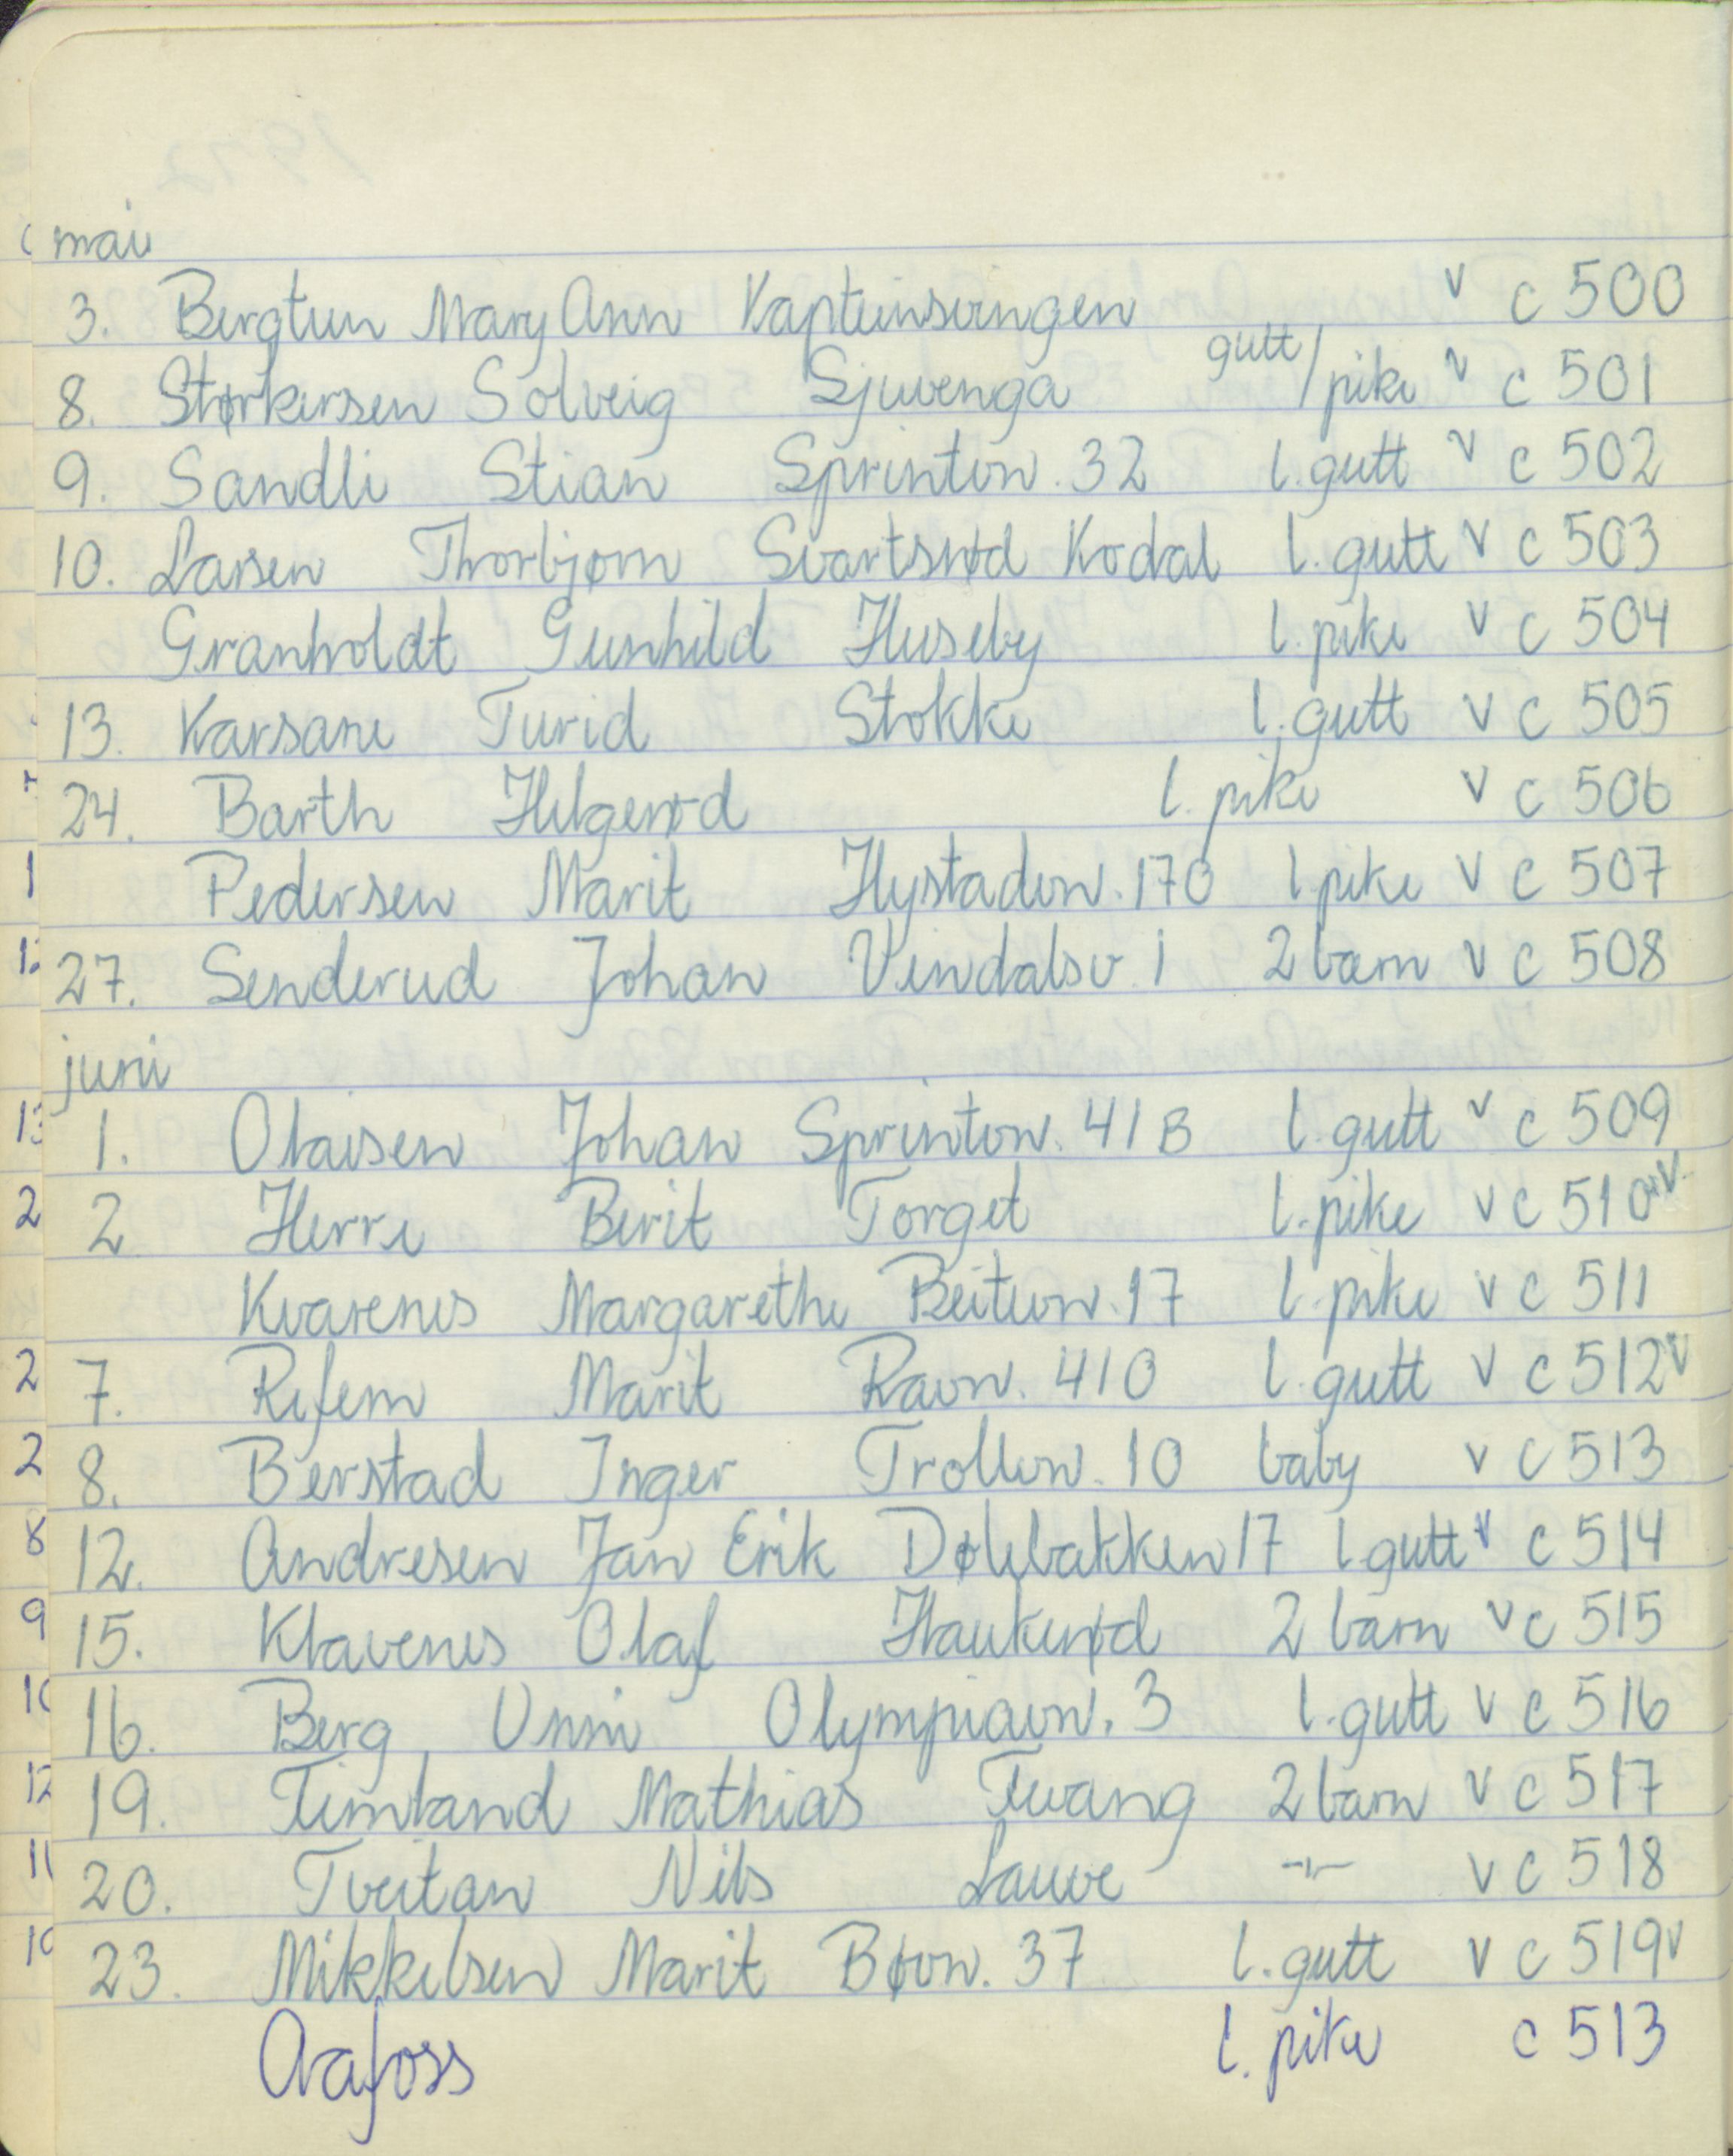 mai
3. Bergtun Mary Ann Kapteinsvingen v c 500
8. Størkersen Solveig Sjuvenga gutt/pike v c 501
9. Sandli Stian Sprintvn. 32 l. gutt v c 502
10. Larsen Thorbjørn Svartsrød Kodal l. gutt v c 503
Granholdt Gunhild Huseby l. pike v c 504
13. Karsare Turid Stokke l. gutt v c 505
24. Barth Helgerød l. pike v c 506
Pedersen Marit Hystadvn. 170 l. pike v c 507
27. Senderud Johan Vindalsv. 1 2 barn v c 508
juni
1. Olaisen Johan Sprintvn. 41 B l. gutt v c 509
2 Herre Berit Torget l. pike v c 510 v
Kvarenes Margarethe Beitevn. 17 l. pike v c 511
7. Refem Marit Ravn. 410 l. gutt v c 512 v
8. Berstad Inger Trollvn. 10 baby v c 513
12. Andresen Jan Erik Dølebakken 17 l. gutt v c 514
15. Klavenes Olaf Haukerød 2 barn v c 515
16. Berg Unni Olympiavn. 3 l. gutt v c 516
19. Timland Mathias Tuvang 2 barn v c 517
20. Tveitan Nils Lauve -"- v c 518
23. Mikkelsen Marit Bøvn. 37 l. gutt v c 519 v
Arafoss l. pike c 513